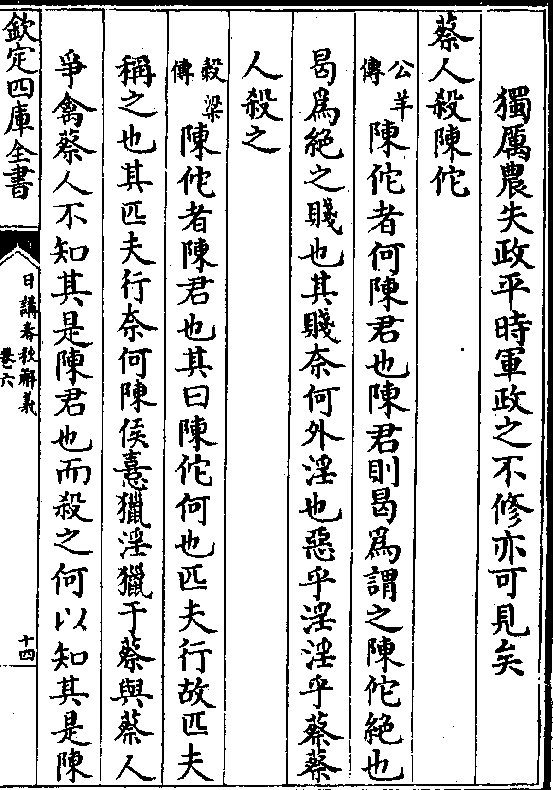 獨厲農失政平時軍政之不修亦可見矣
蔡人殺陳佗
公羊傳陳佗者何陳君也陳君則曷為謂之陳佗絶也
曷為絶之賤也其賤奈何外淫也惡乎淫淫乎蔡蔡
人殺之
穀梁傳陳佗者陳君也其曰陳佗何也匹夫行故匹夫
稱之也其匹夫行奈何陳侯憙獵淫獵于蔡與蔡人
爭禽蔡人不知其是陳君也而殺之何以知其是陳
欽定四庫全書
日講春秋解義
卷六
十四